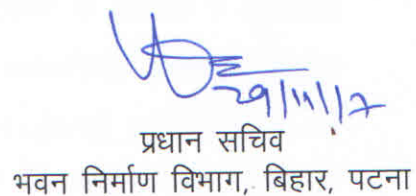 29/11/17
प्रधान सचिव
भवन निर्माण विभाग, बिहार, पटना